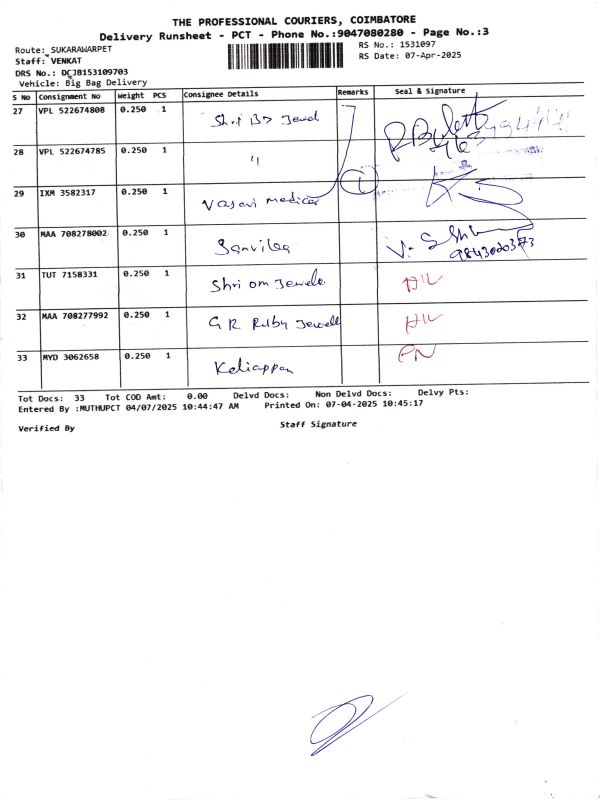 THE PROFESSIONAL COURIERS, COIMBATORE
Delivery Runsheet - PCT - Phone No.:9047080280 - Page No.:3
Route: SUKARAWARPET RS No.: 1531097
Staff: VENKAT RS Date: 07-Apr-2025
DRS No.: DCJB153109703
Vehicle: Big Bag Delivery
S No Consignment No Weight PCS Consignee Details Remarks Seal & Signature
27 VPL 522674808 0.250 1 Shri
28 VPL 522674785 0.250 1 "
29 IXM 3582317 0.250 1 Vasavi medical
1
30 MAA 708278002 0.250 1
9843020373
31 TUT 7158331 0.250 1 Shri om Jewels
32 MAA 708277992 0.250 1 G R Ruby Jewell
33 MYD 3062658 0.250 1 Kaliappan
Tot Docs: 33 Tot COD Amt: 0.00 Delvd Docs: Non Delvd Docs: Delvy Pts:
Entered By :MUTHUPCT 04/07/2025 10:44:47 AM Printed On: 07-04-2025 10:45:17
Verified By Staff Signature